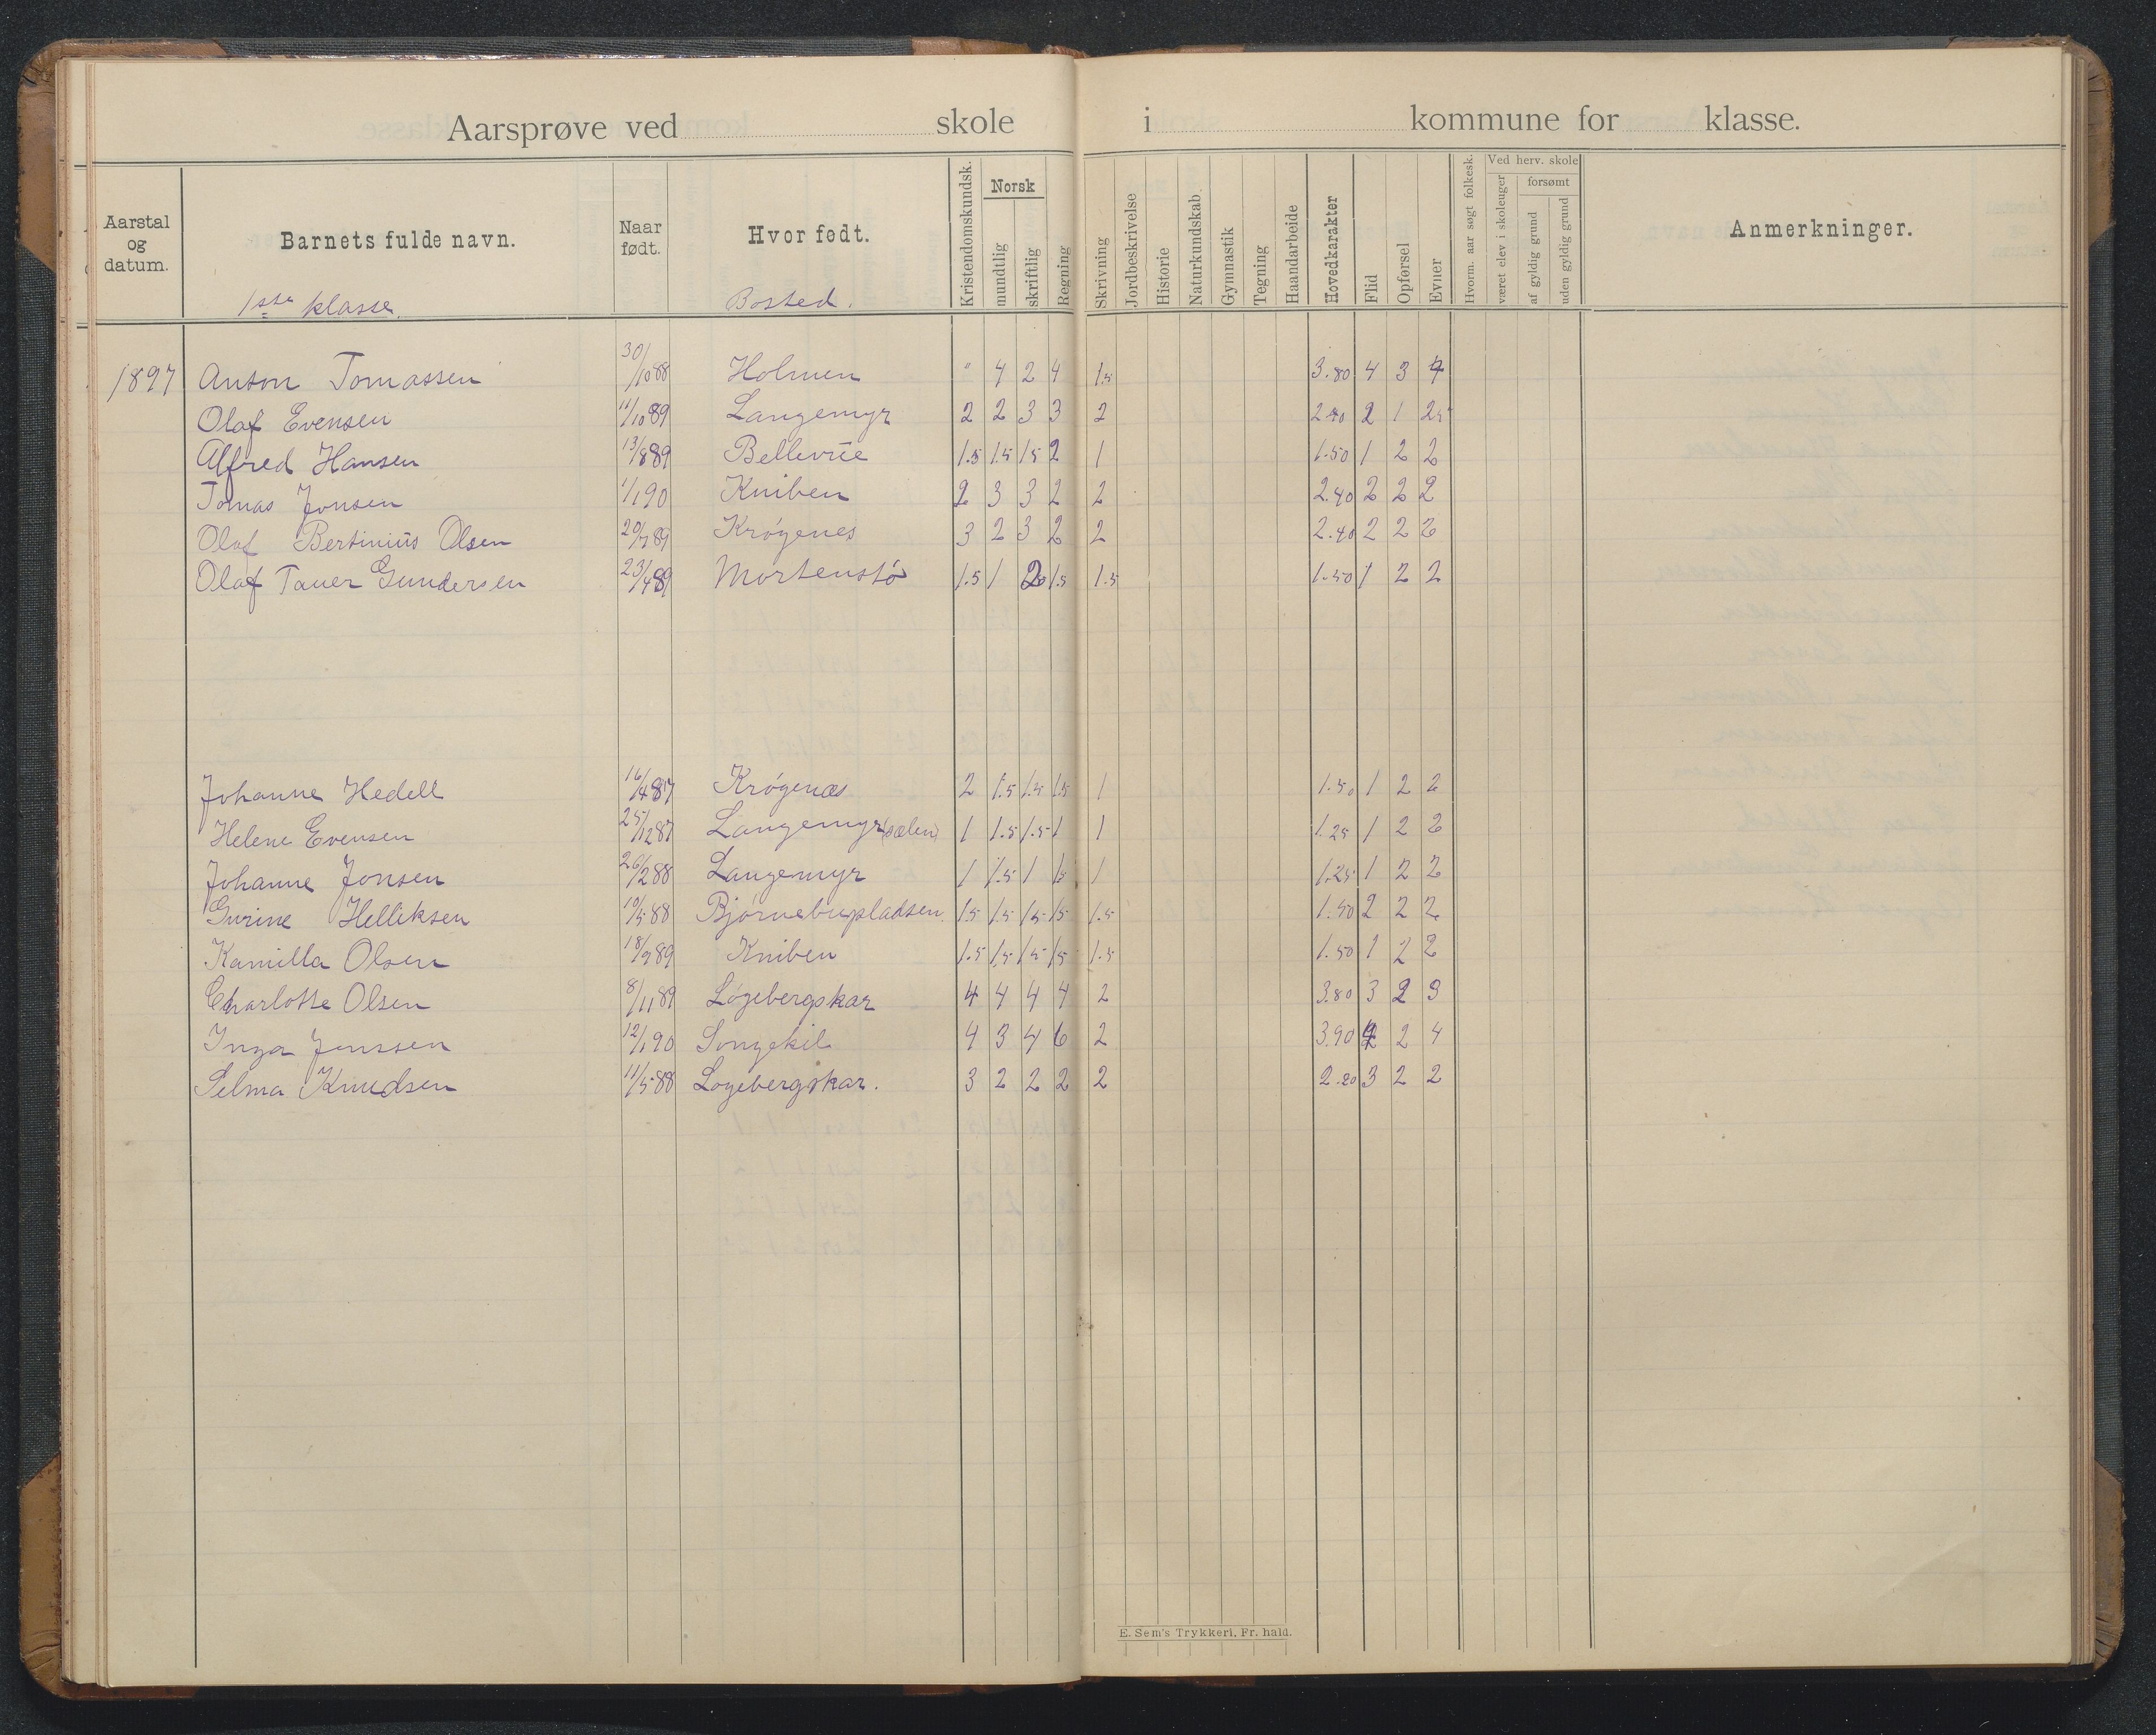 Aarsprøve ved skole i kommune for klasse.
Aarstal og datum.
Barnets fulde navn.
Naar født.
Hvor født.
Kristendomskundsk.
Norsk
mundtlig
skriftlig
Regning
Skrivning
Jordbeskrivelse
Historie
Naturkundskab
Gymnastik
Tegning
Haandarbeide
Hovedkarakter
Flid
Opførsel
Evner
Hvorm. aar søgt folkesk.
Ved herv. skole
været elev i skoleuger
forsømt
af gyldig grund
uden gyldig grund
Anmerkninger.
1ste klasse. Bosted.
1897 Anson Tomassen 30/10 88 Holmen " 4 2 4 1.5 3.80 4 3 4
Olaf Evensen 11/10 89 Langemyr 2 2 3 3 2 2.40 2 1 2.5
Alfred Hansen 13/8 89 Bellevue 1.5 1.5 1.5 2 1 1.50 1 2 2
Tomas Jonsen 1/1 90 Kniben 2 3 3 2 2 2.40 2 2 2
Olaf Bertinius Olsen 20/7 89 Krøgenes 3 2 3 2 2 2.40 2 2 2
Olaf Taner Gundersen 23/4 89 Mortenstø 1.5 1 2 1.5 1.5 1.50 1 2 2
Johanne Hedell 16/4 87 Krøgenæs 2 1.5 1.5 1.5 1 1.50 1 2 2
Helene Evensen 25/12 87 Langemyr 1 1.5 1.5 1 1 1.25 1 2 2
Johanne Jonsen 26/2 88 Langemyr 1 1.5 1 1.5 1 1.25 1 2 2
Gurine Helliksen 10/5 88 Bjørnebupladsen 1.5 1.5 1.5 1.5 1.5 1.50 2 2 2
Kamilla Olsen 18/9 89 Kniben 1.5 1.5 1.5 1.5 1.5 1.50 1 2 2
Charlotte Olsen 8/11 89 Løgebergskar 4 4 4 4 2 3.80 3 2 3
Inga Jenssen 12/1 90 Songekil 4 3 4 6 2 3.90 2 4
Selma Knudsen 11/5 88 Logebergskar. 3 2 2 2 2 2.20 3 2 2
E. Sem's Trykkeri, Fr. hald.